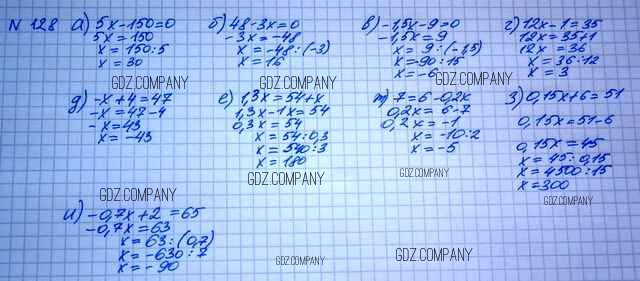 N 128
а) 5x-150=0
5x=150
x=150:5
x=30
GDZ.COMPANY
б) 48-3x=0
-3x=-48
x=-48:(-3)
x=16
GDZ.COMPANY
в) -1,5x-9=0
-1,5x=9
x=9:(-1,5)
x=-90:15
x=-6
GDZ.COMPANY
г) 12x-1=35
12x=35+1
12x=36
x=36:12
x=3
д) -x+4=47
-x=47-4
-x=43
x=-43
GDZ.COMPANY
е) 1,3x=54+x
1,3x-1x=54
0,3x=54
x=54:0,3
x=540:3
x=180
GDZ.COMPANY
ж) 7=6-0,2x
0,2x=6-7
0,2x=-1
x=-10:2
x=-5
GDZ.COMPANY
з) 0,15x+6=51
0,15x=51-6
0,15x=45
x=45:0,15
x=4500:15
x=300
GDZ.COMPANY
и) -0,7x+2=65
-0,7x=63
x=63:(0,7)
x=-630:7
x=-90
GDZ.COMPANY
GDZ.COMPANY